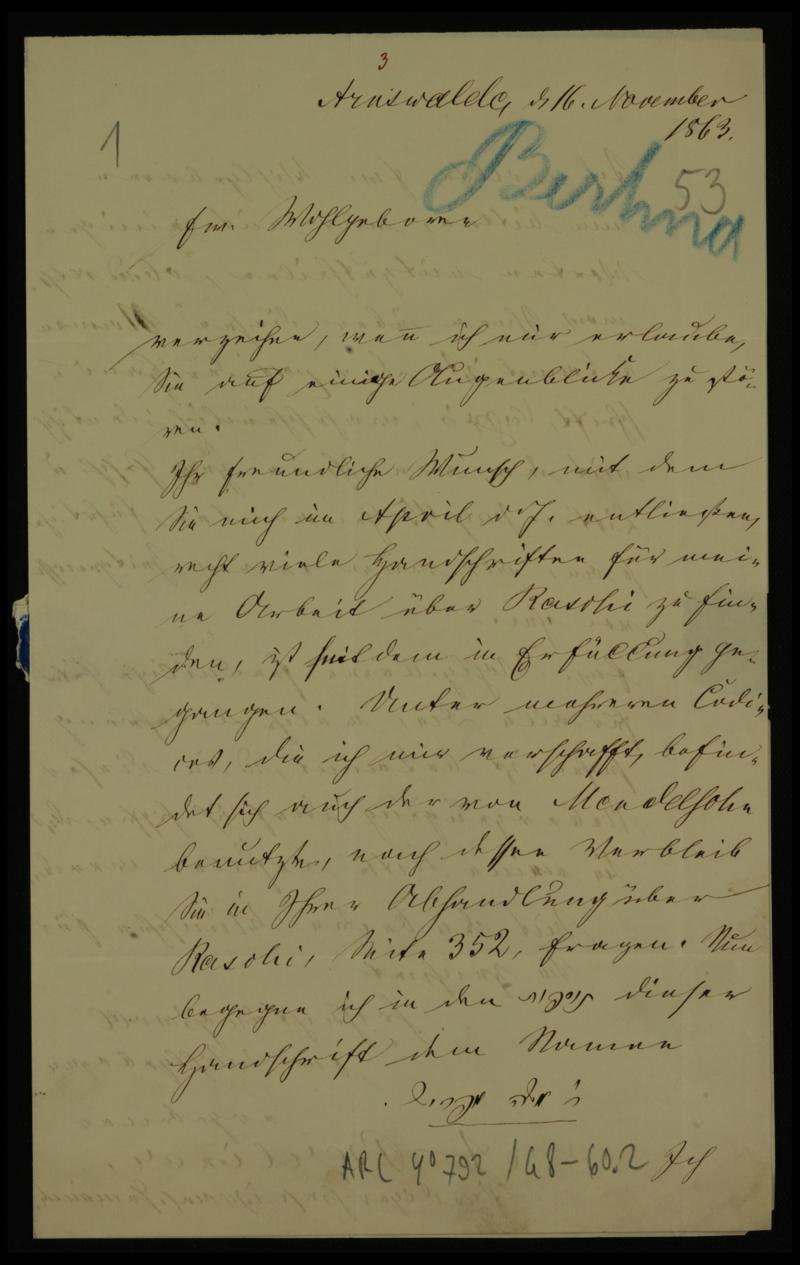 3
Arnswalde, d. 16. November
1863.
1
Berliner
53
Ew. Wohlgeboren
verzeihen, wen̄ ich mir erlaube,
Sie auf einige Augenblicke zu stö-
ren.
Ihr freundliche Wunsch, mit dem
Sie mich im April d. J. entließen,
recht viele Handschriften für mei-
ne Arbeit über Raschi zu fin-
den, ist seitdem in Erfüllung ge-
gangen. Unter mehreren Codi-
ces, die ich mir verschafft, befin-
det sich auch der von Mendelssohn
benutzte, nach dessen Verbleib
Sie in Ihrer Abhandlung über
Raschi, Seite 352, fragen. Nun
begegne ich in den dieser
Handschrift dem Namen
ר'
ARC 4° 792 / G8-60.2
Ich